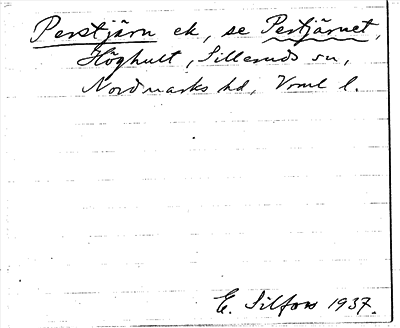 Perstjärn ek, se Perstjärnet,
Höghult, Silleruds sn,
Nordmarks hd, Vrml l.
E. Silfors 1937.